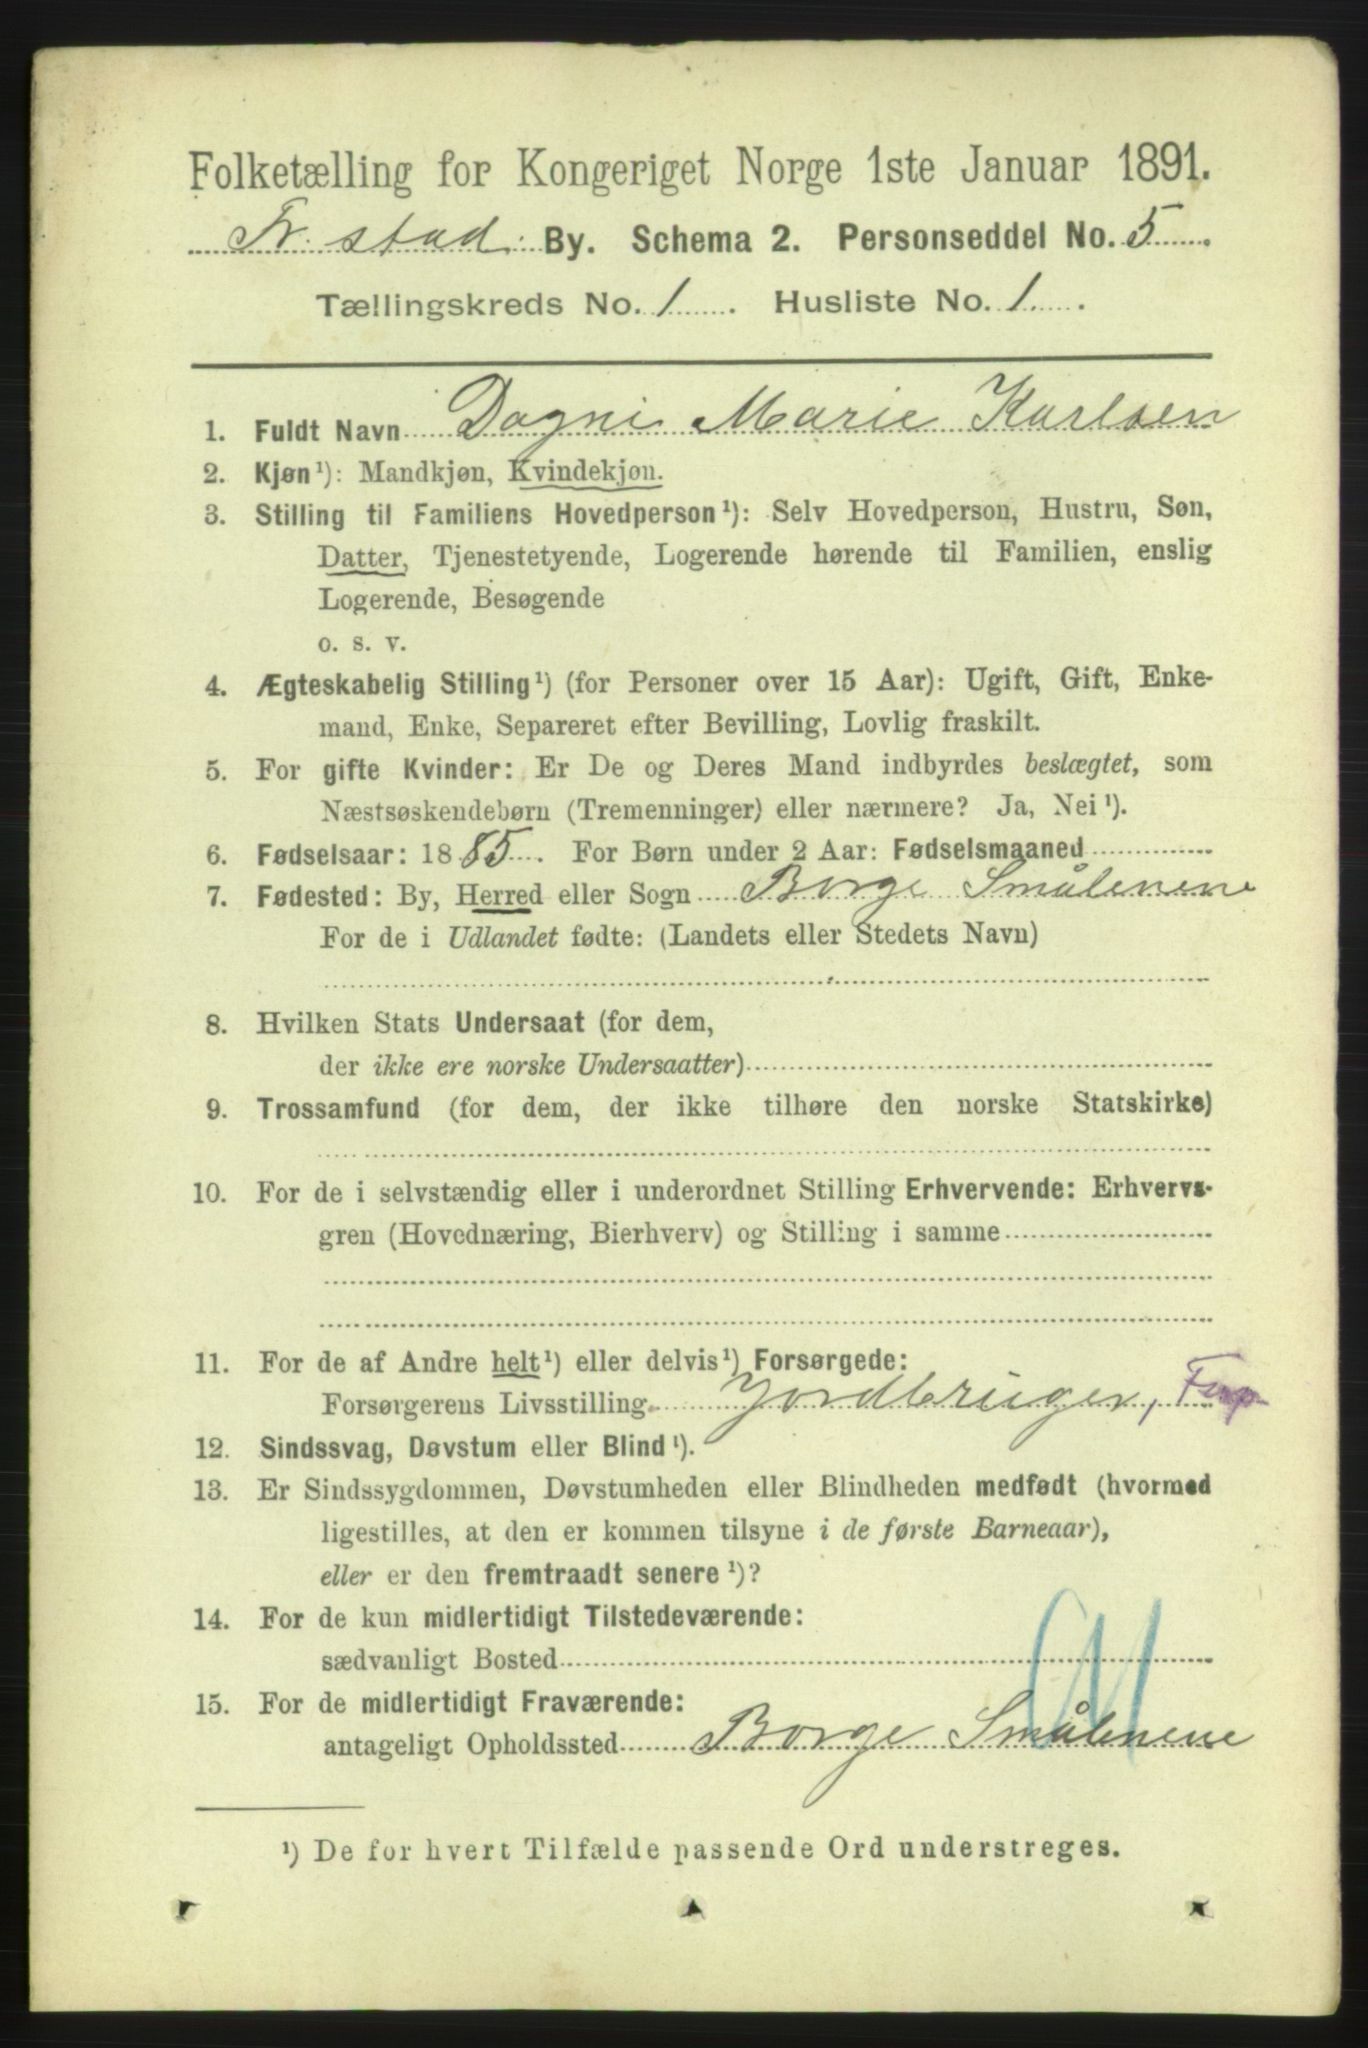 Folketælling for Kongeriget Norge 1ste Januar 1891.
Fr. stad. By. Schema 2. Personseddel No. 5.
Tællingskreds No. 1. Husliste No. 1.
1. Fuldt Navn Dagni Marie Karlsen
2. Kjøn¹): Mandkjøn, Kvindekjøn.
3. Stilling til Familiens Hovedperson¹): Selv Hovedperson, Hustru, Søn,
Datter, Tjenestetyende, Logerende hørende til Familien, enslig
Logerende, Besøgende
o. s. v.
4. Ægteskabelig Stilling¹) (for Personer over 15 Aar): Ugift, Gift, Enke-
mand, Enke, Separeret efter Bevilling, Lovlig fraskilt.
5. For gifte Kvinder: Er De og Deres Mand indbyrdes beslægtet, som
Næstsøskendebørn (Tremenninger) eller nærmere? Ja, Nei¹).
6. Fødselsaar: 1885. For Børn under 2 Aar: Fødselsmaaned
7. Fødested: By, Herred eller Sogn Borge Smålenene
For de i Udlandet fødte: (Landets eller Stedets Navn)
8. Hvilken Stats Undersaat (for dem,
der ikke ere norske Undersaatter)
9. Trossamfund (for dem, der ikke tilhøre den norske Statskirke)
10. For de i selvstændig eller i underordnet Stilling Erhvervende: Erhvervs-
gren (Hovednæring, Bierhverv) og Stilling i samme
11. For de af Andre helt¹) eller delvis¹) Forsørgede:
Forsørgerens Livsstilling Jordbruger,
12. Sindssvag, Døvstum eller Blind¹).
13. Er Sindssygdommen, Døvstumheden eller Blindheden medfødt (hvormed
ligestilles, at den er kommen tilsyne i de første Barneaar),
eller er den fremtraadt senere¹)?
14. For de kun midlertidigt Tilstedeværende:
sædvanligt Bosted
15. For de midlertidigt Fraværende:
antageligt Opholdssted Borge Smålenene
¹) De for hvert Tilfælde passende Ord understreges.